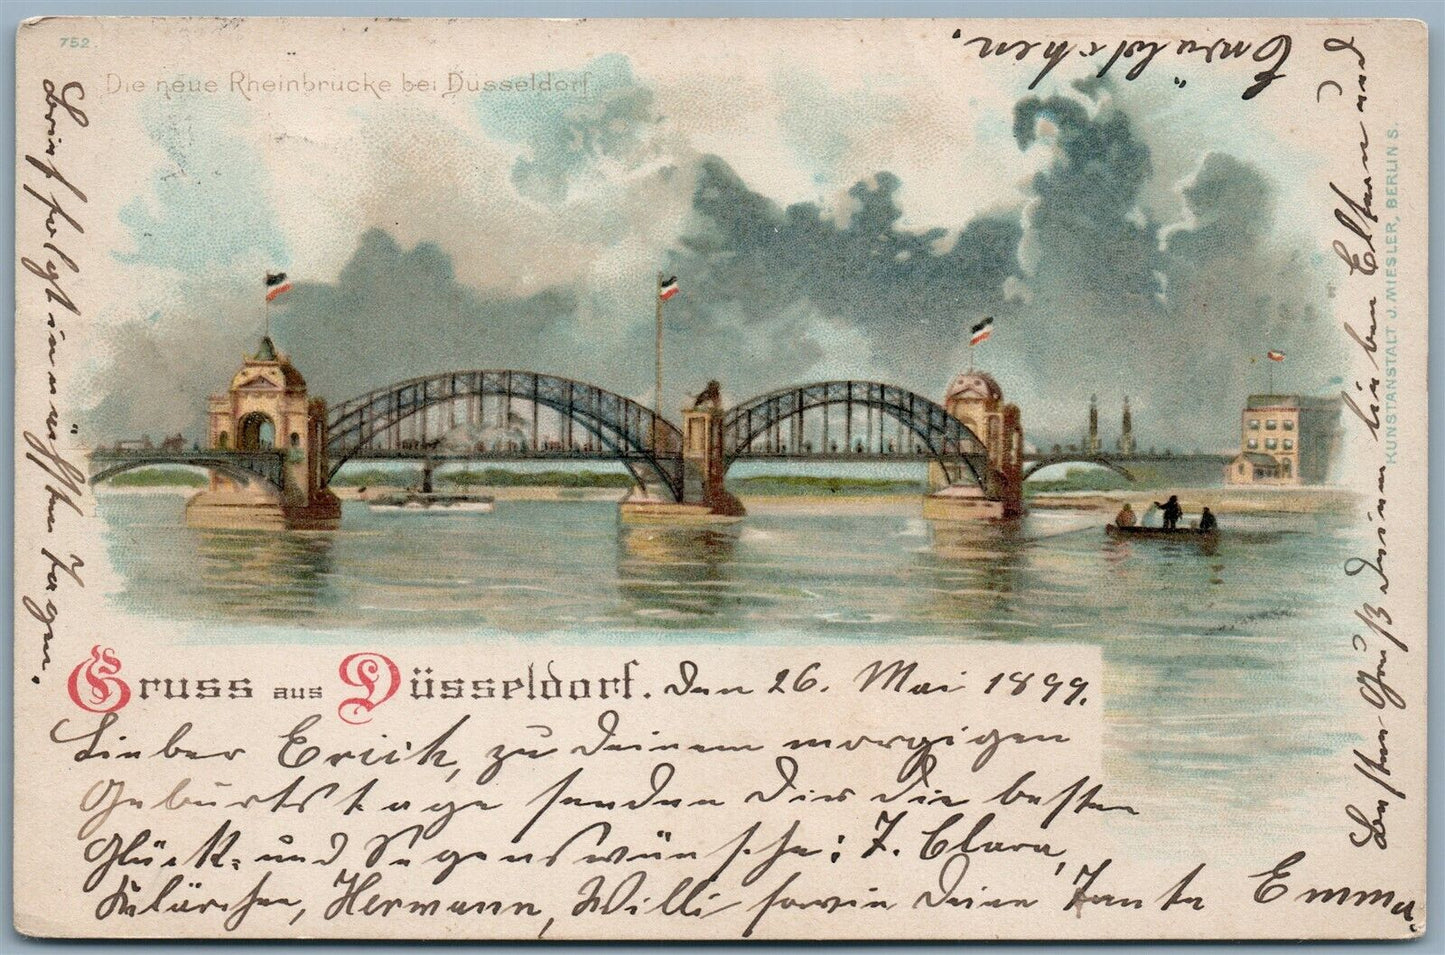 752
Die neue Rheinbrücke bei Düsseldorf
KUNSTANSTALT J. MIESLER, BERLIN S.
Gruss aus Düsseldorf. Den 26. Mai 1899.
Lieber Erich, zu Deinem morgigen
Geburtstage senden Dir die besten
Glück- und Segenswünsche: T. Clara,
Klärchen, Hermann, Willi sowie Deine Tante Emma.
Besten Gruß Deinen lieben Eltern und
Brief folgt in nächsten Tagen.